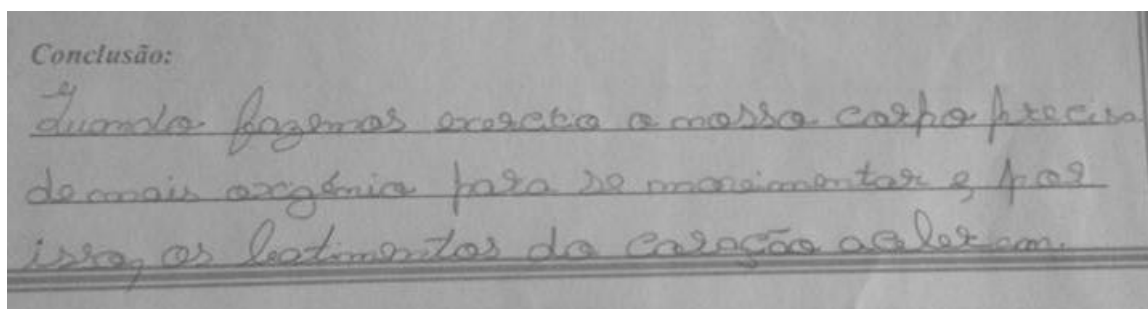 Conclusão:
Quando fazemos exercício o nosso corpo precisa
de mais oxigénio para se movimentar e, por
isso, os batimentos do coração aceleram.